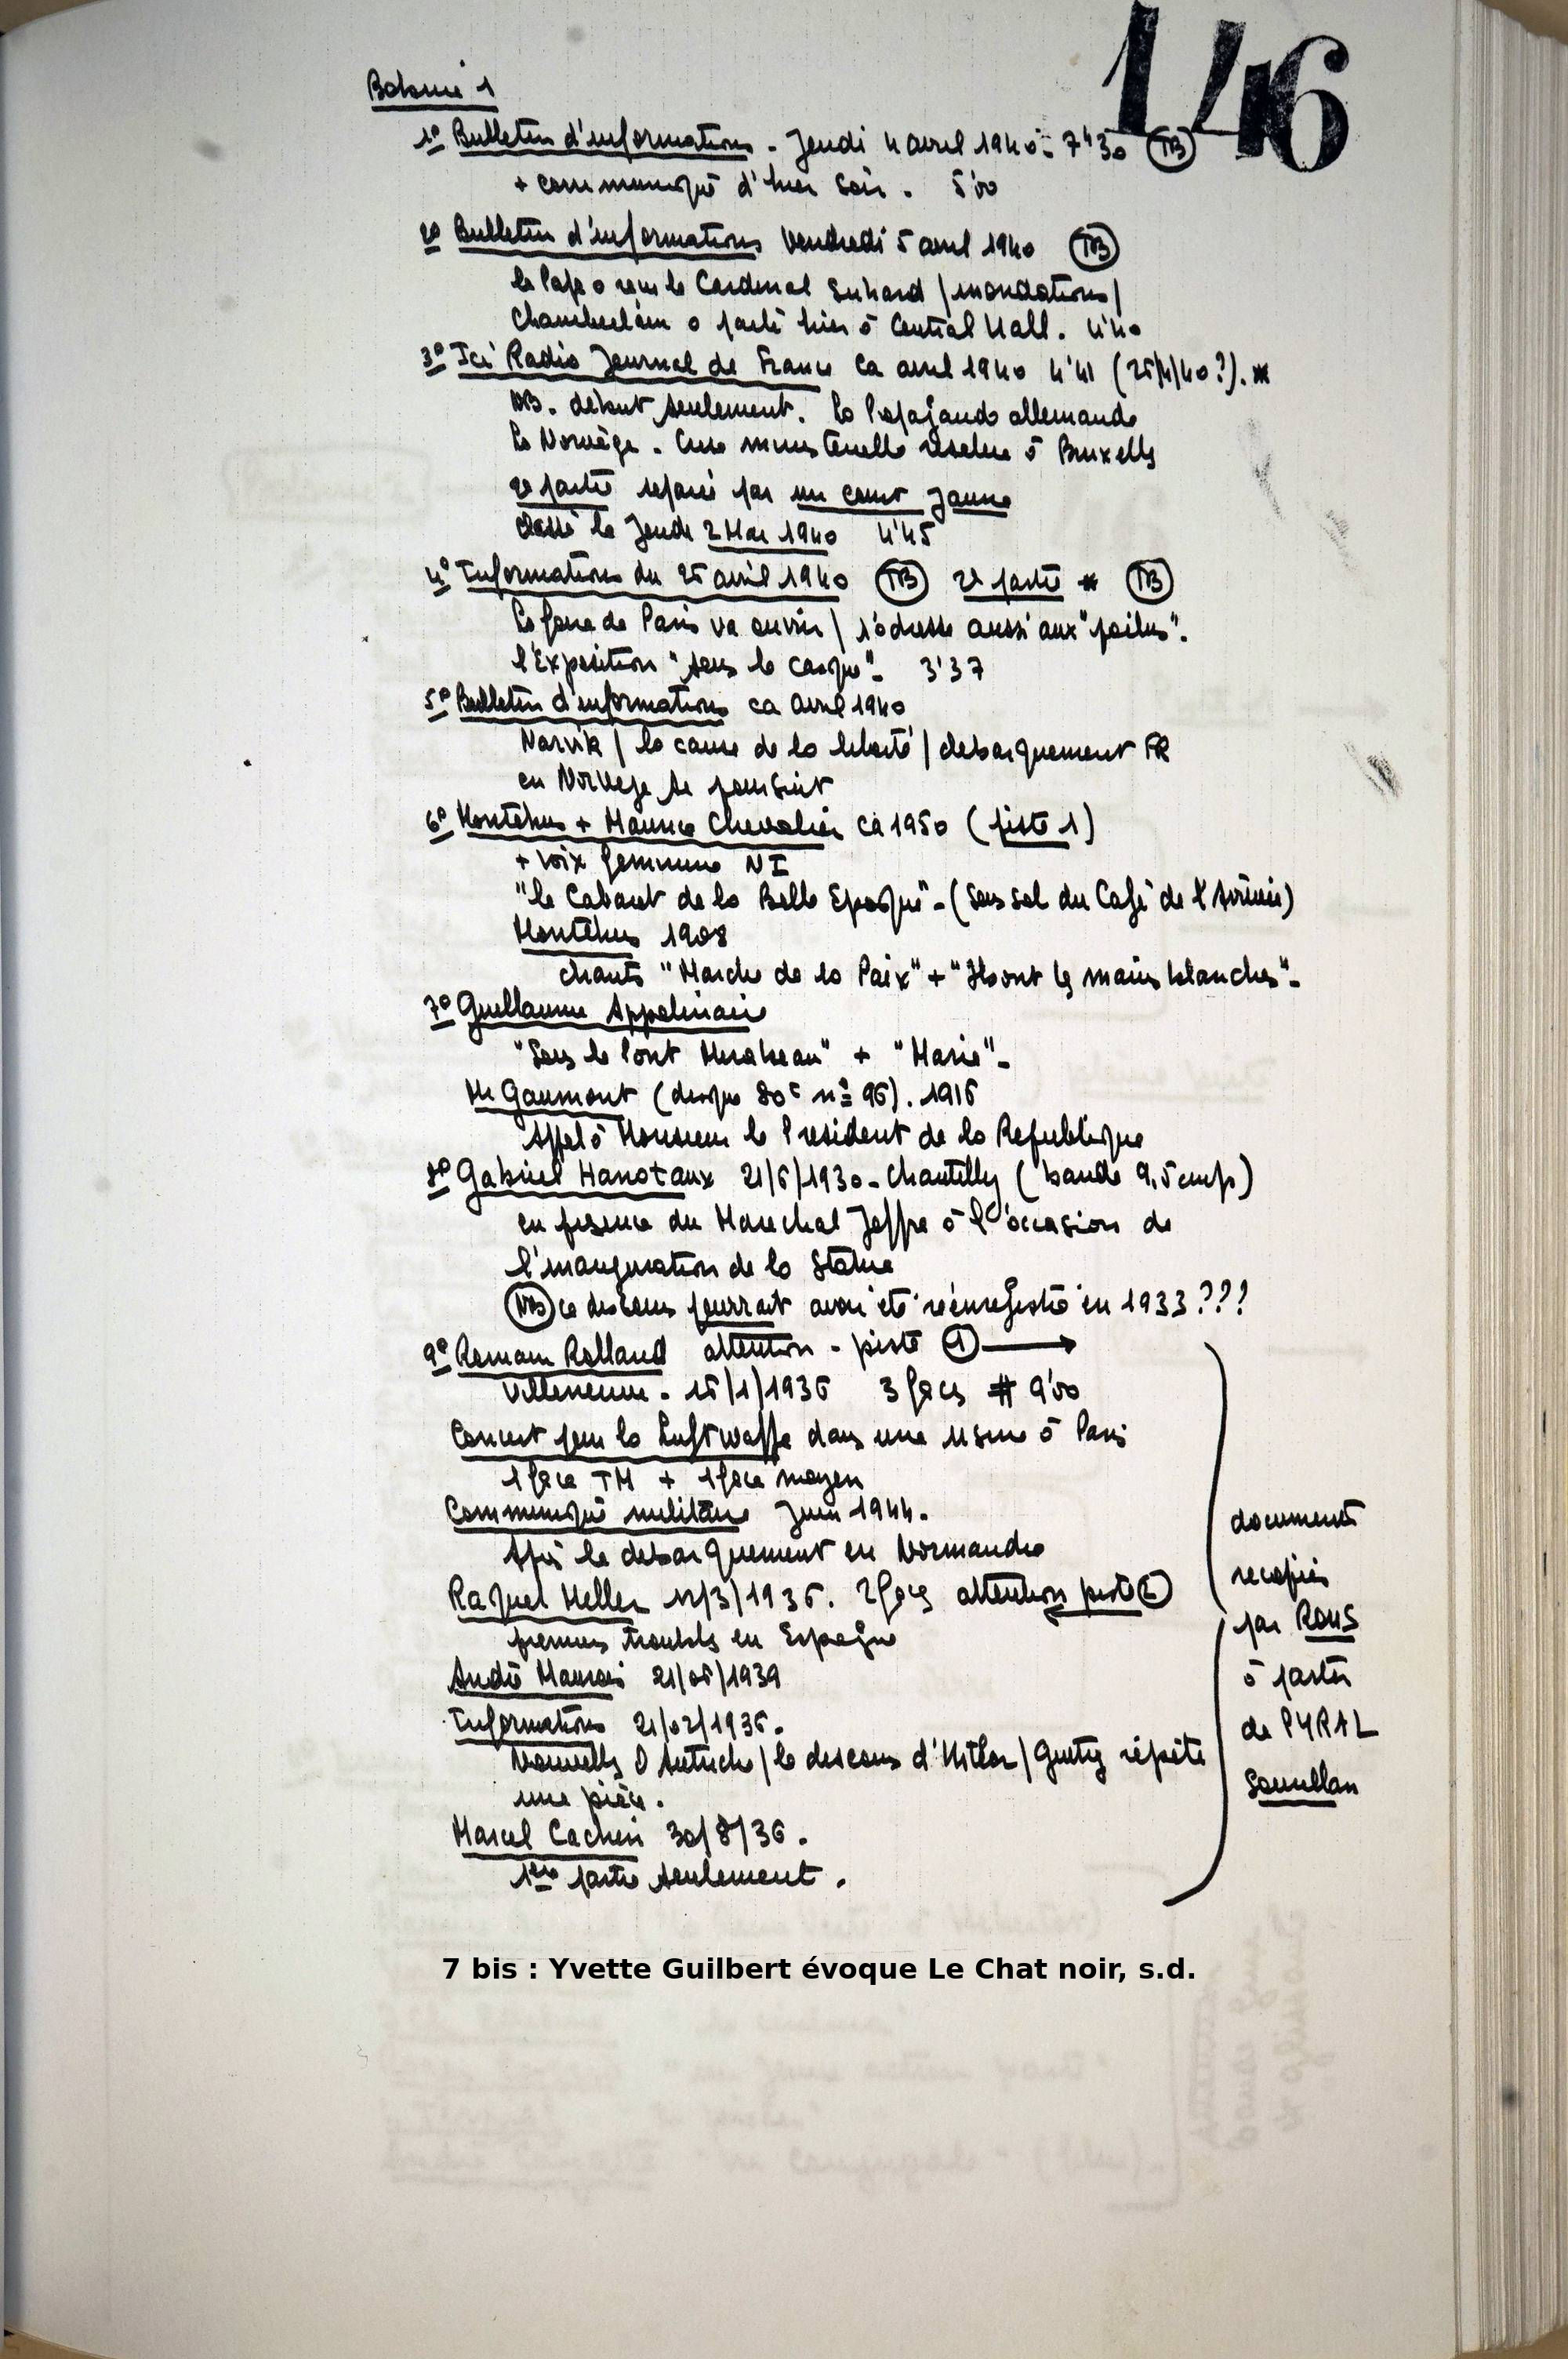 146
1° Bulletin d'informations - Jeudi 4 avril 1940 - 7h30 TB
+ communiqué d'hier soir. 5'00
2° Bulletin d'informations Vendredi 5 avril 1940 TB
le Pape a reçu le Cardinal Suhard / inondations /
Chamberlain a parlé hier à Central Hall. 4'40
3° Ici Radio Journal de France Ca avril 1940 4'41 (25/4/40?). *
NB. début seulement. La Propagande allemande
La Norvège. Crise ministérielle résolue à Bruxelles
2e partie separé par un court Jaune
classé le Jeudi 2 Mai 1940 4'45
4° Informations du 25 avril 1940 TB 2e partie * TB
La foire de Paris va ouvrir / s'adresse aussi aux "poilus".
l'Exposition "sous le casque" - 3'37
5° Bulletin d'informations ca avril 1940
Narvik / la cause de la liberté / debarquement FR
en Norvege se poursuit
6° Montéhus + Maurice Chevalier ca 1950 (piste 1)
+ voix feminine NI
"le Cabaret de la Belle Epoque" - (sous sol du Café de l'Armée)
Montéhus 1908
chants "Marche de la Paix" + "Ils ont les mains blanches" -
7° Guillaume Appolinaire
"Sous le Pont Mirabeau" + "Marie" -
Mr Gaumont (disque 80c n° 96). 1916
Appel à Monsieur le President de la Republique
8° Gabriel Hanotaux 21/6/1930 - Chantilly (bande 9,5 cmps)
en presence du Marechal Joffre à l'occasion de
l'inauguration de la Statue
NB ce discours pourrait avoir été réenregistré en 1933???
9° Romain Rolland attention - piste 1 →
Villeneuve - 15/1/1936 3 faces # 9'00
Concert pour la Luftwaffe dans une usine à Paris
1 face TM + 1 face moyen
Communiqué militaire Juin 1944.
Après le debarquement en Normandie
Raquel Meller 12/3/1936. 2 faces attention piste 2
premiers troubles en Espagne
André Maurois 21/05/1939
Informations 21/02/1936.
Nouvelles D'Autriche / le discours d'Hitler / Guitry répète
une pièce.
Marcel Cachin 30/8/36.
1ère partie seulement.
documents
recopiés
par ROUS
à partir
de PYRAL
7 bis : Yvette Guilbert évoque Le Chat noir, s.d.